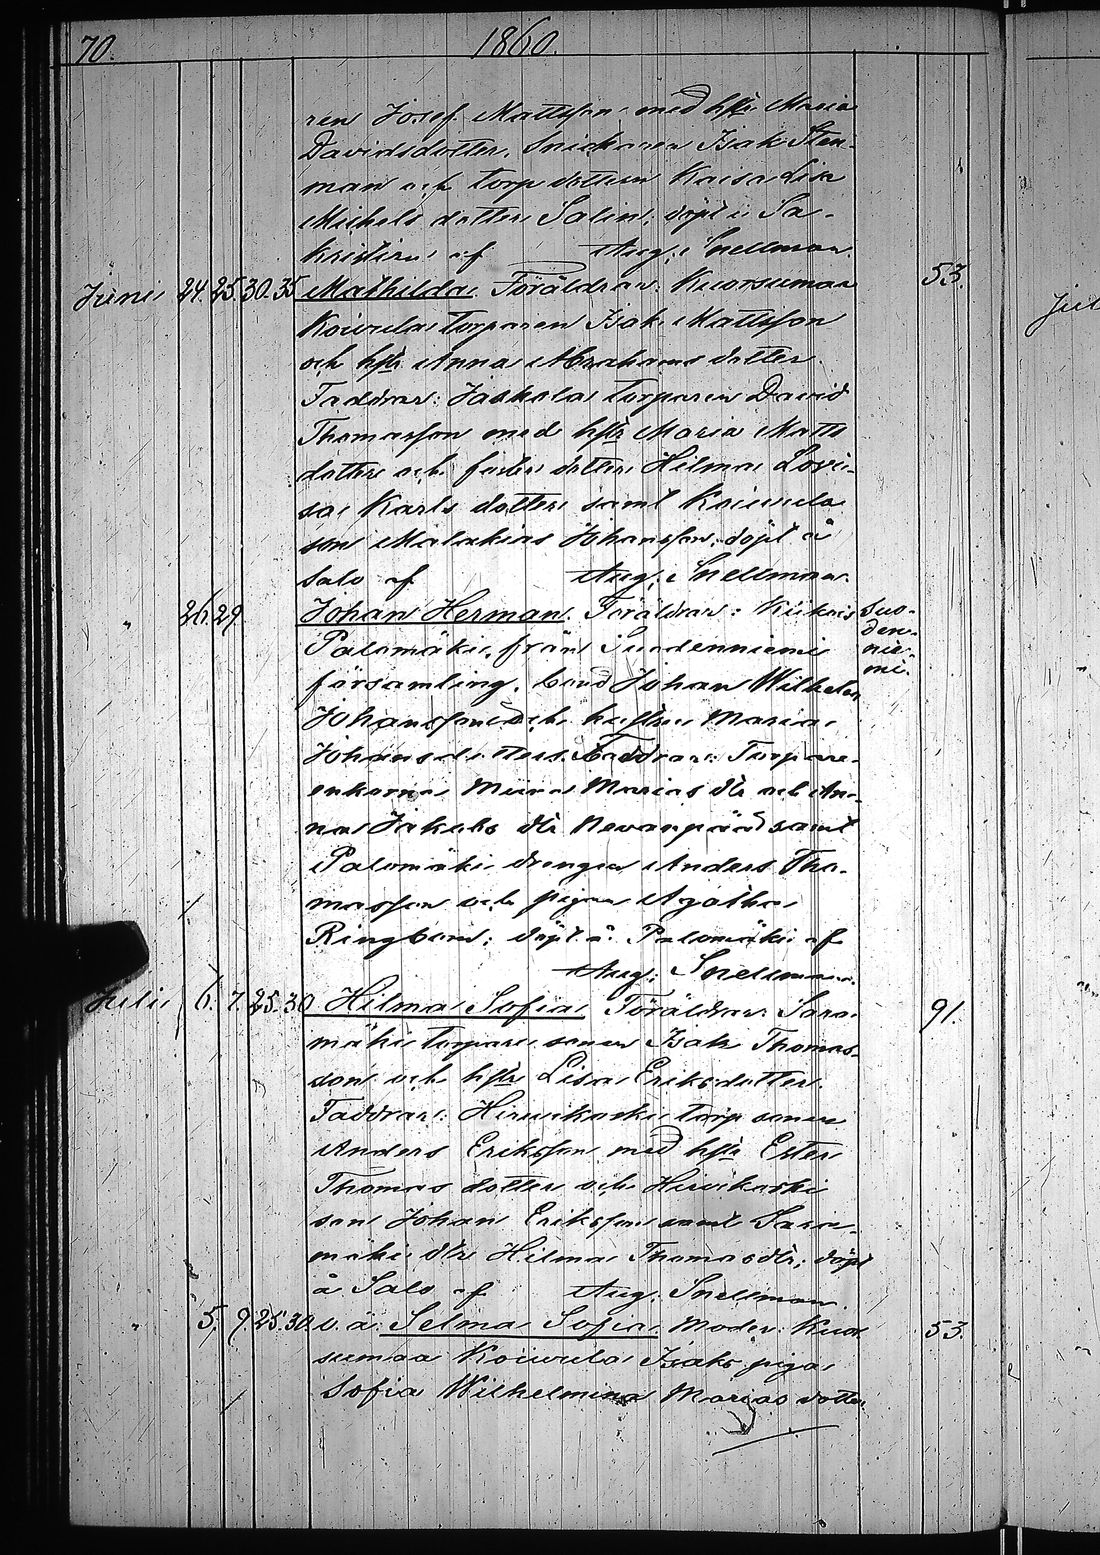 70. 1860.
ren Josef Mattsson med hstr Maria
Davidsdotter, Snickaren Isak Sten-
man och torp dottern Kaisa Lisa
Michels dotter Salin; döpt i Sa-
kristian af Aug. Snellman.
Junii 24. 25. 30. 35 Mathilda. Föräldrar: Kuorsumaa 53.
Koivula torparen Isak Mattsson
och hstr Anna Abrahams dotter.
Faddrar: Jaskola torparen David
Thomasson med hstr Maria Matts
dotter och dotter Hilma Lovi-
sa Karls dotter samt Koivula
son Malakias Johansson; döpt å
Salo af Aug. Snellman.
" 26. 29 Johan Herman. Föräldrar: Kiikois Suo-
den-
nie-
mi.
Palomäki, från Suodenniemi
församling, bond Johan Wilhelm
Johansson och hustru Maria
Johansdotter. Faddrar: Torpare-
enkorna Miina Marias dtr och An-
na Jakobs dtr Nevanpää samt
Palomäki drengen Anders Tho-
masson och pigan Agatha
Ringbom; döpt å Palomäki af
Aug. Snellman.
Julii 6. 7. 25. 30 Hilma Sofia. Föräldrar: Sara- 91.
mäki torpare sonen Isak Thomas-
son och hstr Lisa Eriksdotter.
Faddrar: Hirvikoski torp sonen
Anders Eriksson med hstr Ester
Thomas dotter och Hirvikoski
son Johan Eriksson samt Sara-
mäki dtr Hilma Thomasdtr; döpt
å Salo af Aug. Snellman.
" 5. 9. 25. 30. o. ä. Selma Sofia. Moder: Kuor- 53.
sumaa Koivula Isaks piga
Sofia Wilhelmina Marias dotter
Jul